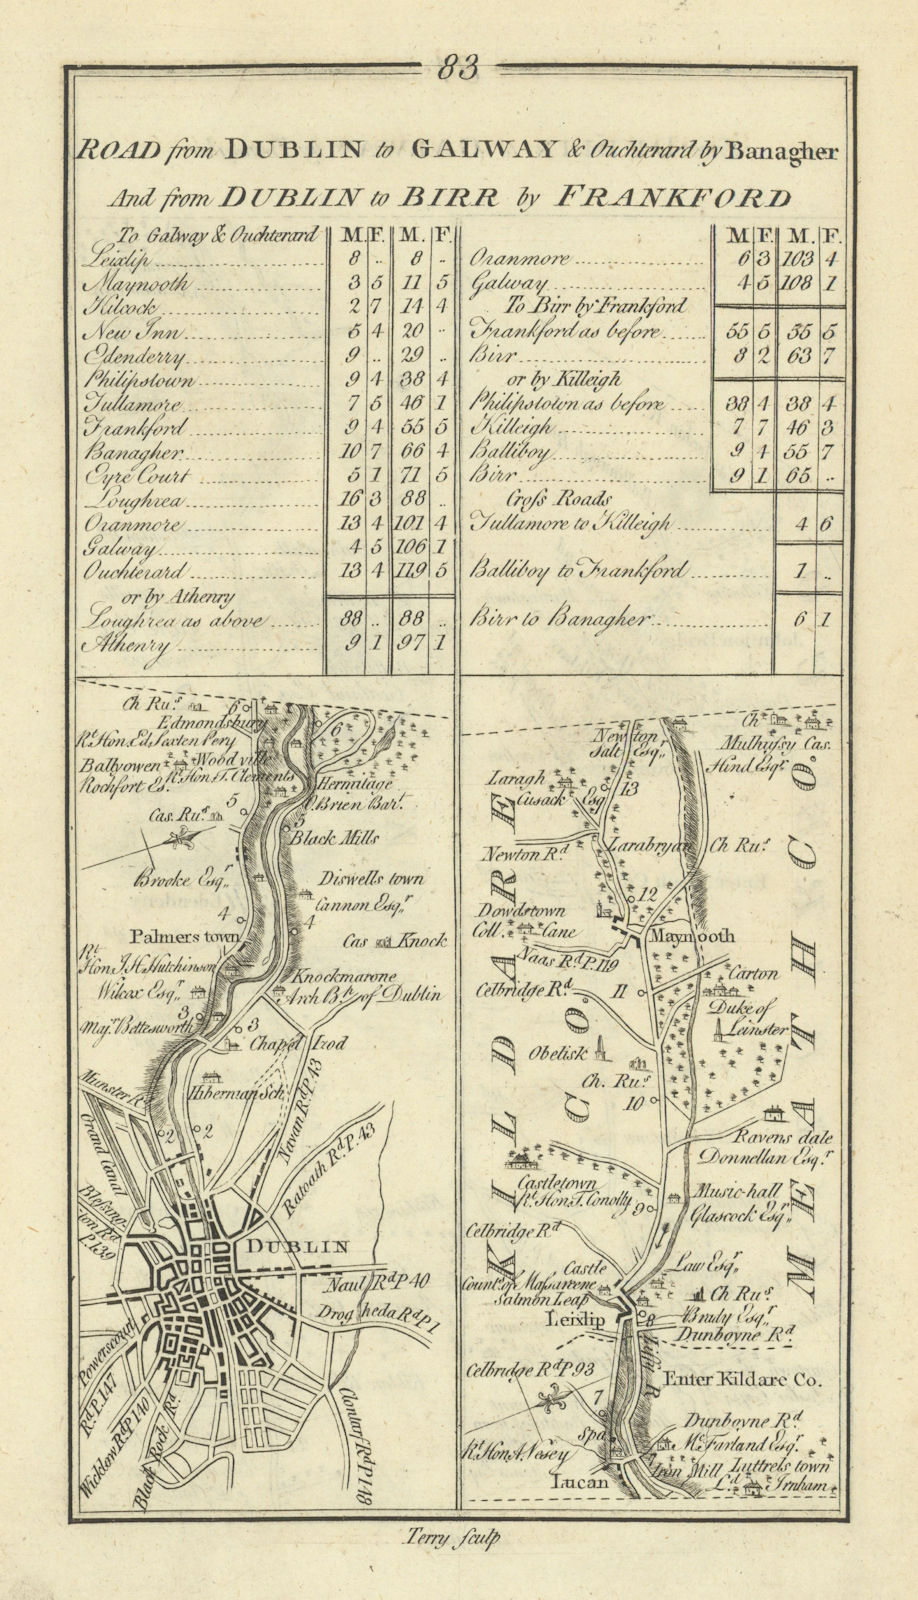 83
ROAD from DUBLIN to GALWAY & Ouchterard by Banagher
And from DUBLIN to BIRR by FRANKFORD
To Galway & Ouchterard M. F. M. F.
Leixlip 8 .. 8 ..
Maynooth 3 5 11 5
Kilcock 2 7 14 4
New Inn 5 4 20 ..
Edenderry 9 .. 29 ..
Philipstown 9 4 38 4
Tullamore 7 5 46 1
Frankford 9 4 55 5
Banagher 10 7 66 4
Eyre Court 5 1 71 5
Loughrea 16 3 88 ..
Oranmore 13 4 101 4
Galway 4 5 106 1
Ouchterard 13 4 119 5
or by Athenry
Loughrea as above 88 .. 88 ..
Athenry 9 1 97 1
M. F. M. F.
Oranmore 6 3 103 4
Galway 4 5 108 1
To Birr by Frankford
Frankford as before 55 5 35 5
Birr 8 2 63 7
or by Killeigh
Philipstown as before 38 4 38 4
Killeigh 7 7 46 3
Balliboy 9 4 55 7
Birr 9 1 65 ..
Cross Roads
Tullamore to Killeigh 4 6
Balliboy to Frankford 1 ..
Birr to Banagher 6 1
Ch Rus. 6
Edmondsbury
Rt. Hon. Ed Sexten Pery
6
Ballyowen
Woodville
Rochfort Es.
Rt. Hon. T. Clements
Hermitage
O.Brien Bart.
5
Cas. Rus.
5
Black Mills
Brooke Esqr.
Diswells town
Cannon Esqr.
4
4
Palmers town
Cas Knock
Rt.
Hon J.H. Hutchinson
Knockmarone
Wilcox Esqr.
Arch Bp. of Dublin
3
Majr. Bettesworth
3
Chapel Izod
Hibernian Sch.
Munster R.
Navan Rd. P. 43
2
2
Grand Canal
Ratoath Rd. P. 43
Blesinton Rd
P. 139
DUBLIN
Naul Rd P 40
Drogheda Rd P 1
Powerscourt
Rd. P. 147
Wicklow Rd P 140
Black Rock Rd
Clontarf Rd P 148
Newton
Salt Esqr.
Ch
Mulhussy Cas.
Hind Esqr.
Laragh
Cusack Esq
13
Newton Rd.
Larabryan
Ch Rus.
12
Dowdstown
Coll. Cane
Maynooth
Naas Rd. P. 119
Carton
Celbridge Rd.
11
Duke of
Leinster
Obelisk
Ch. Rus.
10
Ravens dale
Donnellan Esqr.
Castletown
Rt. Hon. T. Conolly
Music-hall
Glascock Esqr.
9
Celbridge Rd
Castle
Law Esqr.
Count. of Massareene
Salmon Leap
Ch Rus.
Leixlip
8
Brady Esqr.
Dunboyne Rd.
Liffy R
Celbridge Rd P 93
Enter Kildare Co.
7
Dunboyne Rd.
Spa
Mc. Farland Esqr.
Rt Hon A. Vesey
Iron Mill
Luttrels town
Lucan
Ld. Irnham
KILDARE
CO.
MEATH CO.
Terry sculp